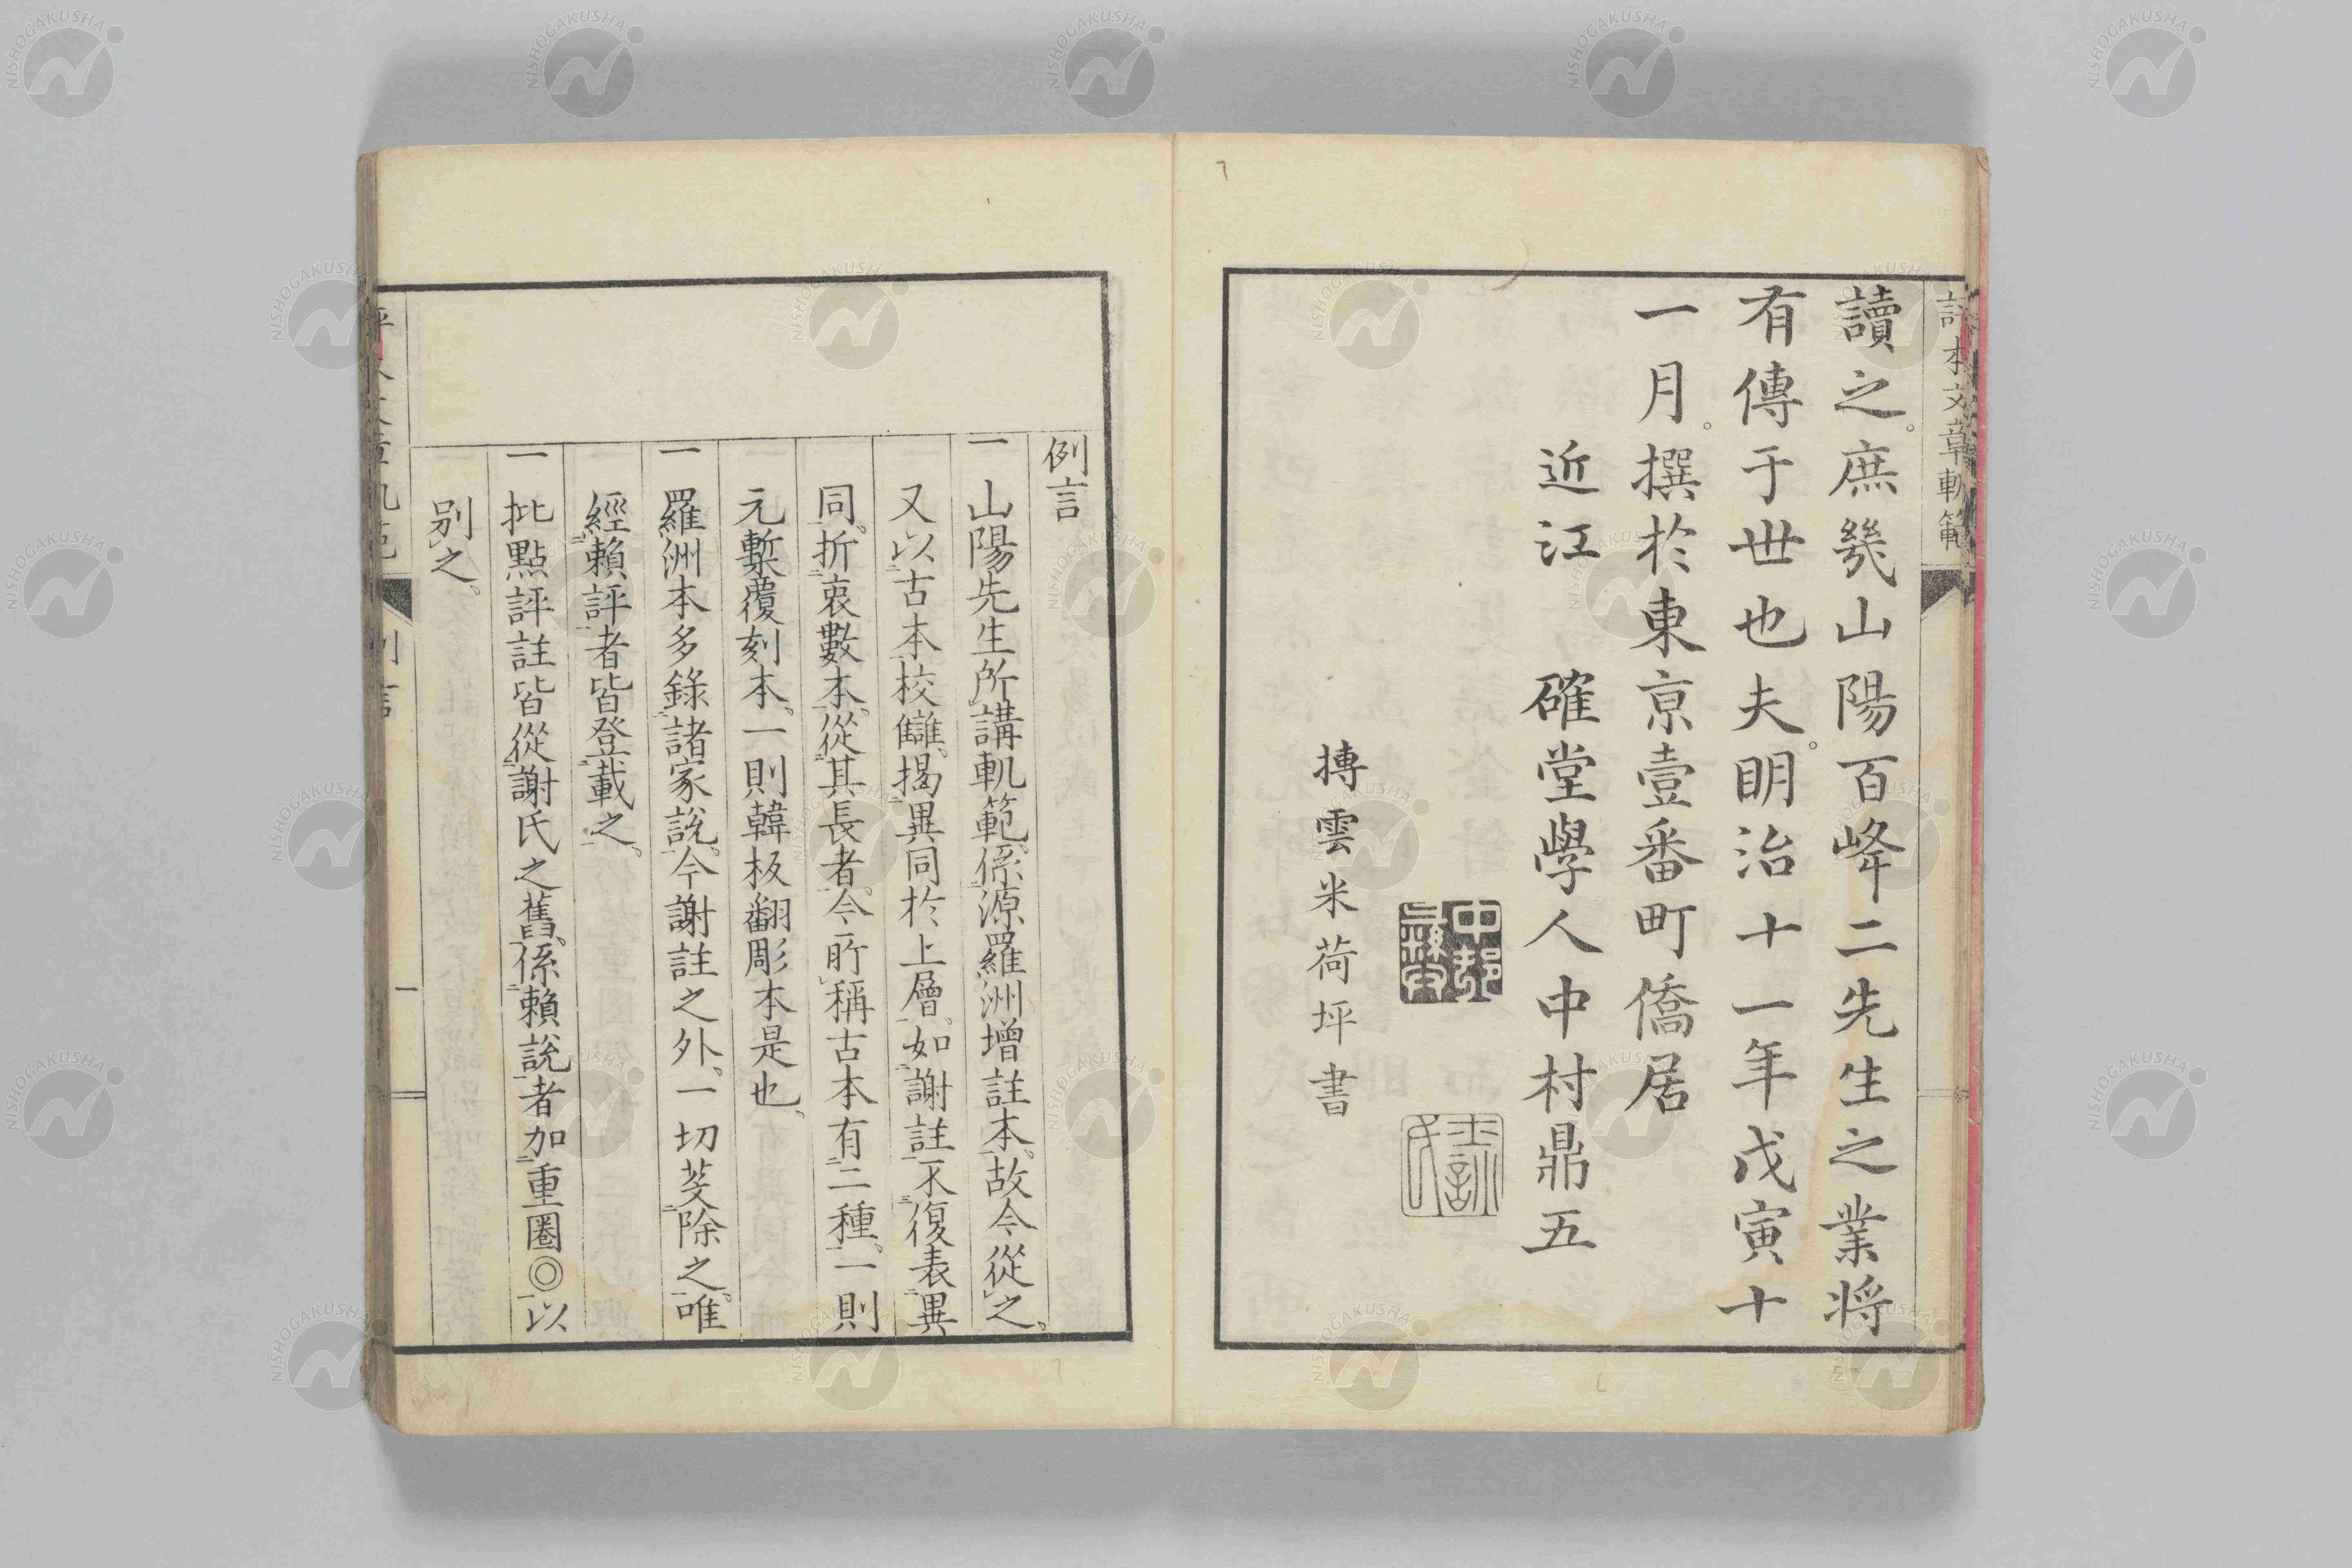 評本文章軌範
讀之。庶幾山陽百峰二先生之業將
有傳于世也夫。明治十一年戊寅十
一月。撰於東京壹番町僑居
近江 確堂學人中村鼎五
摶雲米荷坪書
例言
一山陽先生所講軌範。係源羅洲增註本。故今從之。
又以古本校讎。揭異同於上層。如謝註不復表異
同。折衷數本。從其長者。今所稱古本有二種。一則
元槧覆刻本。一則韓板翻彫本是也。
一羅洲本多錄諸家說。今謝註之外。一切芟除之。唯
經賴評者皆登載之。
一批點評註皆從謝氏之舊。係賴說者加重圈◎以
別之。
例言
一
NISHOGAKUSHA